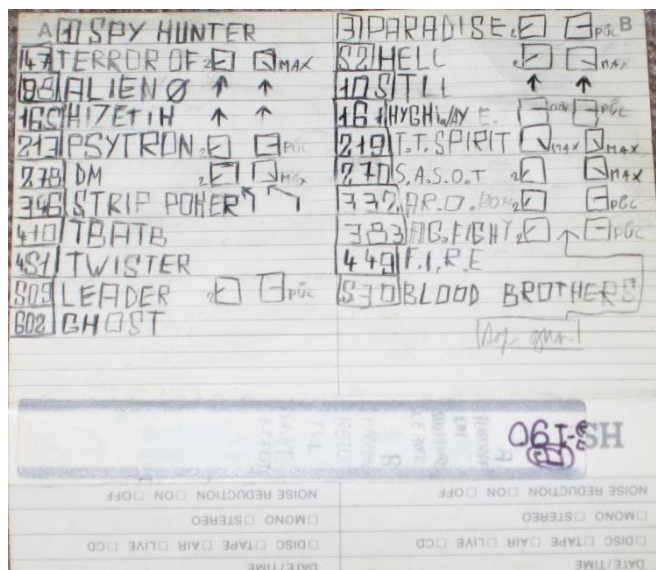 A 1 SPY HUNTER
147 TERROR OF 2 MAX
ALIEN Ø ↑ ↑
165 ↑ ↑
213 PSYTRON 2 PŮL
278 DM 2 MAX
346 STRIP POKER
410 TBATB
451 TWISTER
509 LEADER 2 PŮL
602 GHOST
3 PARADISE 2 PŮL B
52 HELL 2 MAX
105 TLL ↑ ↑
161 HYGHWAY E. PŮL
219 T.T. SPIRIT MAX MAX
270 S.A.S.O.T 2 MAX
332 2 PŮL
383 AG. FIGHT 2 PŮL
449 F.I.R.E
530 BLOOD BROTHERS
HS-190
NOISE REDUCTION □ON □OFF
□MONO □STEREO
□DISC □TAPE □AIR □LIVE □CD
DATE/TIME
NOISE REDUCTION □ON □OFF
□MONO □STEREO
□DISC □TAPE □AIR □LIVE □CD
DATE/TIME